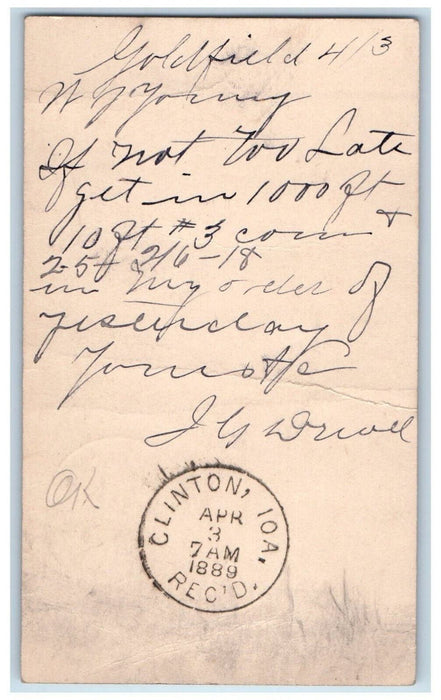 Goldfield 4/3
W J Young
If not too Late
get in 1000 ft
10 ft #3 com &
25 2/6-18
in my order of
yesterday
Yours &c
J G
OK
CLINTON, IOA.
APR
3
7AM
1889
REC'D.